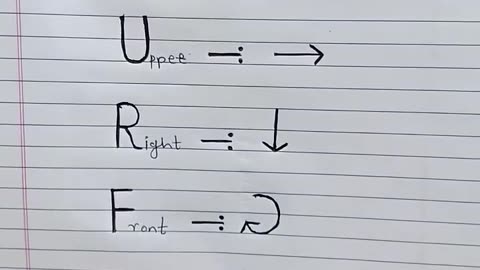 Upper –: →
Right –: ↓
Front –: ↻